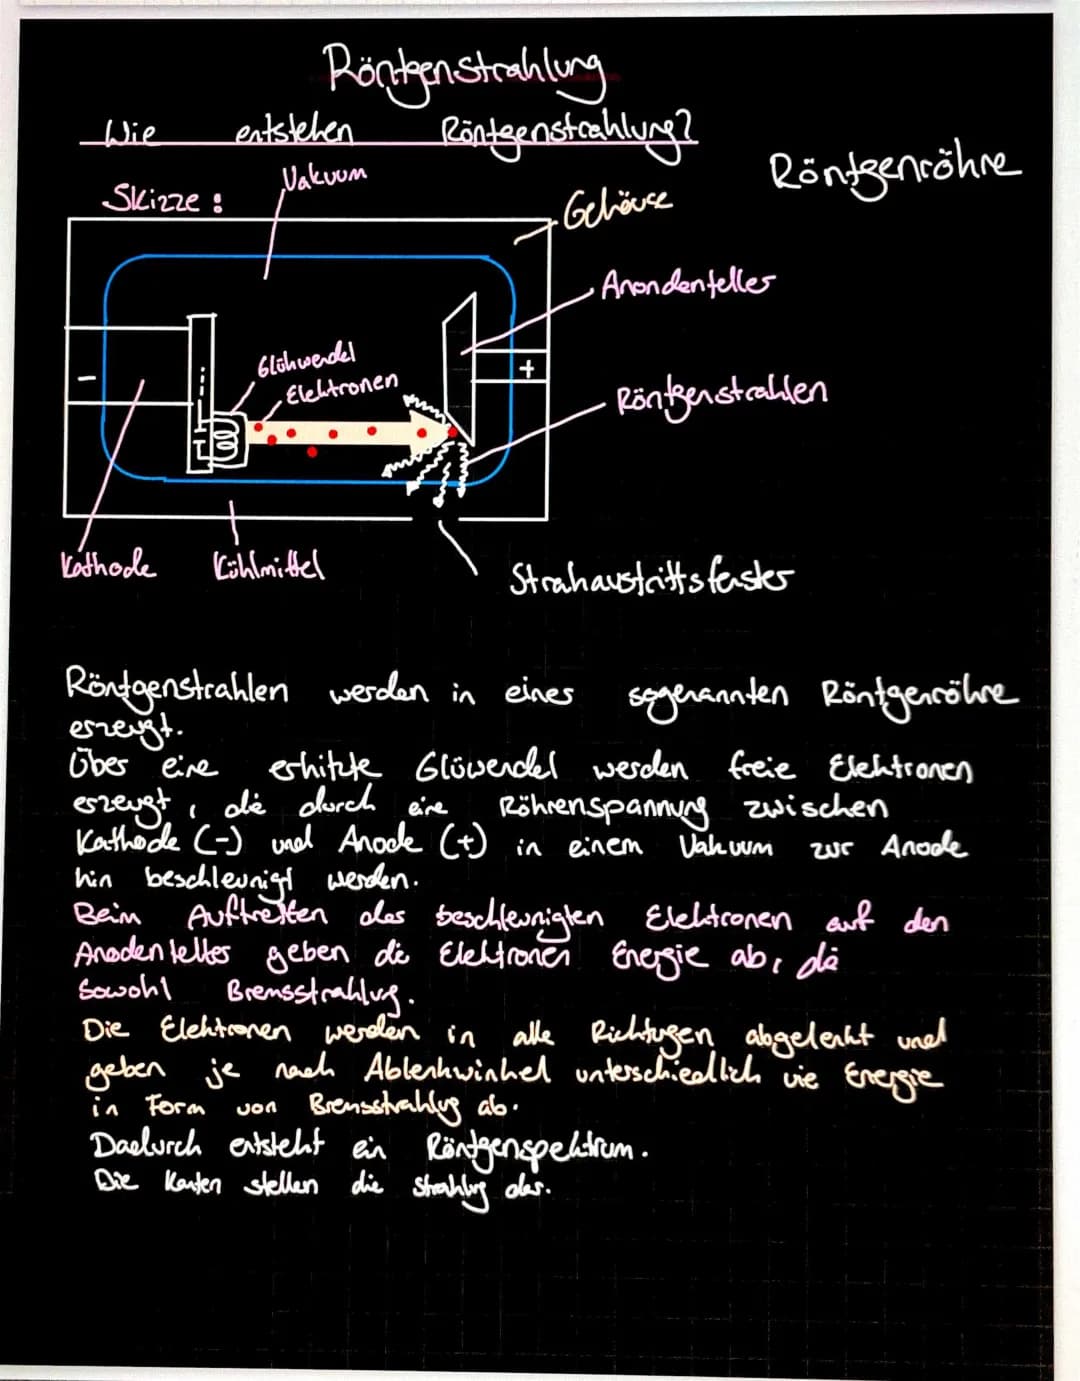 Röntgenstrahlung
Wie entstehen Röntgenstrahlung?
Röntgenröhre
Skizze :
Vakuum
Gehäuse
Anondenteller
Glühwendel
Elektronen
Röntgenstrahlen
-
+
Kathode
Kühlmittel
Strahaustrittsfenster
Röntgenstrahlen werden in einer sogenannten Röntgenröhre
erzeugt.
Über eine erhitzte Glüwendel werden freie Elektronen
erzeugt, die durch eine Röhrenspannung zwischen
Kathode (-) und Anode (+) in einem Vakuum zur Anode
hin beschleunigt werden.
Beim Auftretten der beschleunigten Elektronen auf den
Anodenteller geben die Elektronen Energie ab, die
sowohl Bremsstrahlug.
Die Elektronen werden in alle Richtugen abgelenkt und
geben je nach Ablenkwinkel unterschiedlich vie Energie
in Form von Bremsstrahlug ab.
Dadurch entsteht ein Röntgenspektrum.
Die Kanten stellen die Strahlug dar.